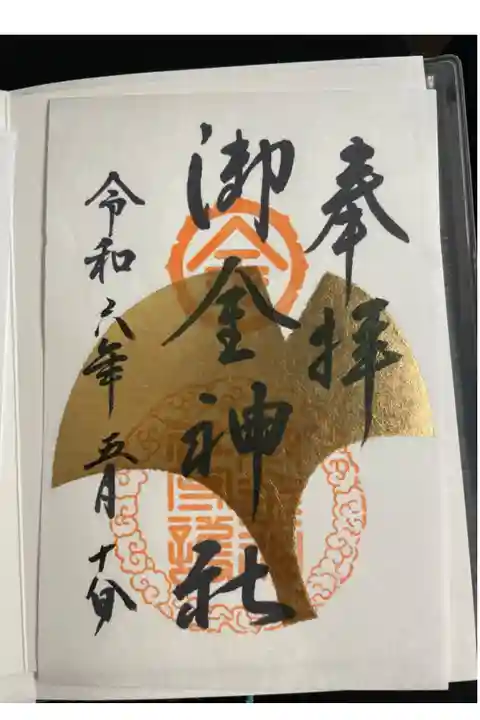 奉拝
御金神社
令和六年五月十